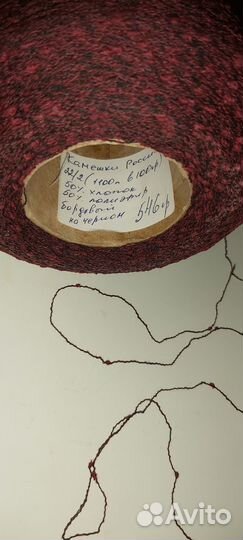 Камешки Россия
32/2 (1100м в 100гр)
50% хлопок
50% полиэфир
бордовый
на черном 546гр
Avito